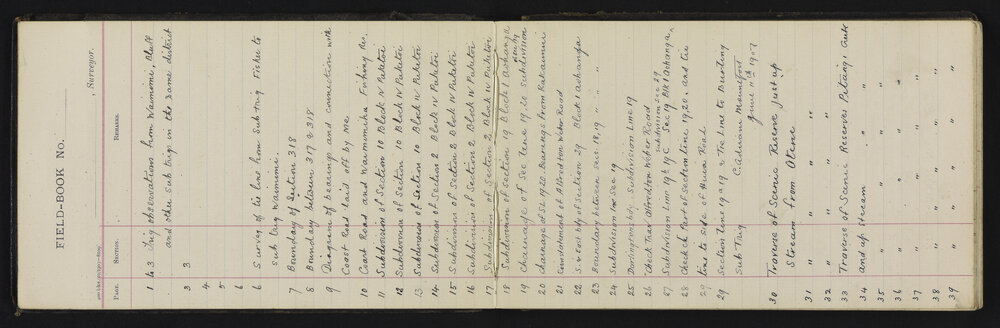 FIELD-BOOK No.
, Surveyor.
PAGE. SECTION. REMARKS.
1 to 3 Trig observations from Waimomimi Bluff
and other sub trigs in the same district
3 3
4
5
6
6 Survey of tie line from Sub Trig Fisher to
Sub Trig Waimomi.
7 Boundary of Section 318
8 Boundary between 317 & 318
9 Diagram of bearings and connection with
Coast Road laid off by me
10 Coast Road and Waimomiku Fishing Res.
11 Subdivision of Section 10 Block IV Puketoi
12 Subdivision of Section 10 Block IV Puketoi
13 Subdivision of Section 10 Block IV Puketoi
14 Subdivision of Section 2 Block IV Puketoi
15 Subdivisions of Section 2 Block IV Puketoi
16 Subdivision of Section 2 Block IV Puketoi
17 Subdivision of Section 2 Block IV Puketoi
18 Subdivision of section 19 Block 1 Aohanga
19 Chainage of Sec line 19.20 Subdivision
20 chainage of SL 19.20 Bearings from Rakaunui
21 Coustument of Alfredton Weber Road
22 S.W. Cor bdy of Section 29 Block 1 Aohanga
23 Boundary between Secs 18, 19 " "
24 Subdivision line Sec 19
25 Doringtons bdy. Subdivision Line 19
26 Check Trav Alfredton Weber Road
27 Subdivision Line 19b 19c Sec 19 Blk 1 Aohanga,
subdivision sec 29
28 Check Part of section line 19.20. and tie
29 line to side of Huia Road
29 Section line 19a 19 & Tie Line to Bunting
Sub Trig C. Adnam Mountfort
June 11th 1907
30 Traverse of Scenic Reserve just up
Stream from Otene
31 " " " "
32 " " " "
33 Traverse of Scenic Reserves Pitangi. Auk
34 and up stream " "
35 " " " "
36 " " " "
37 " " " "
38 " " " "
39 " " " "